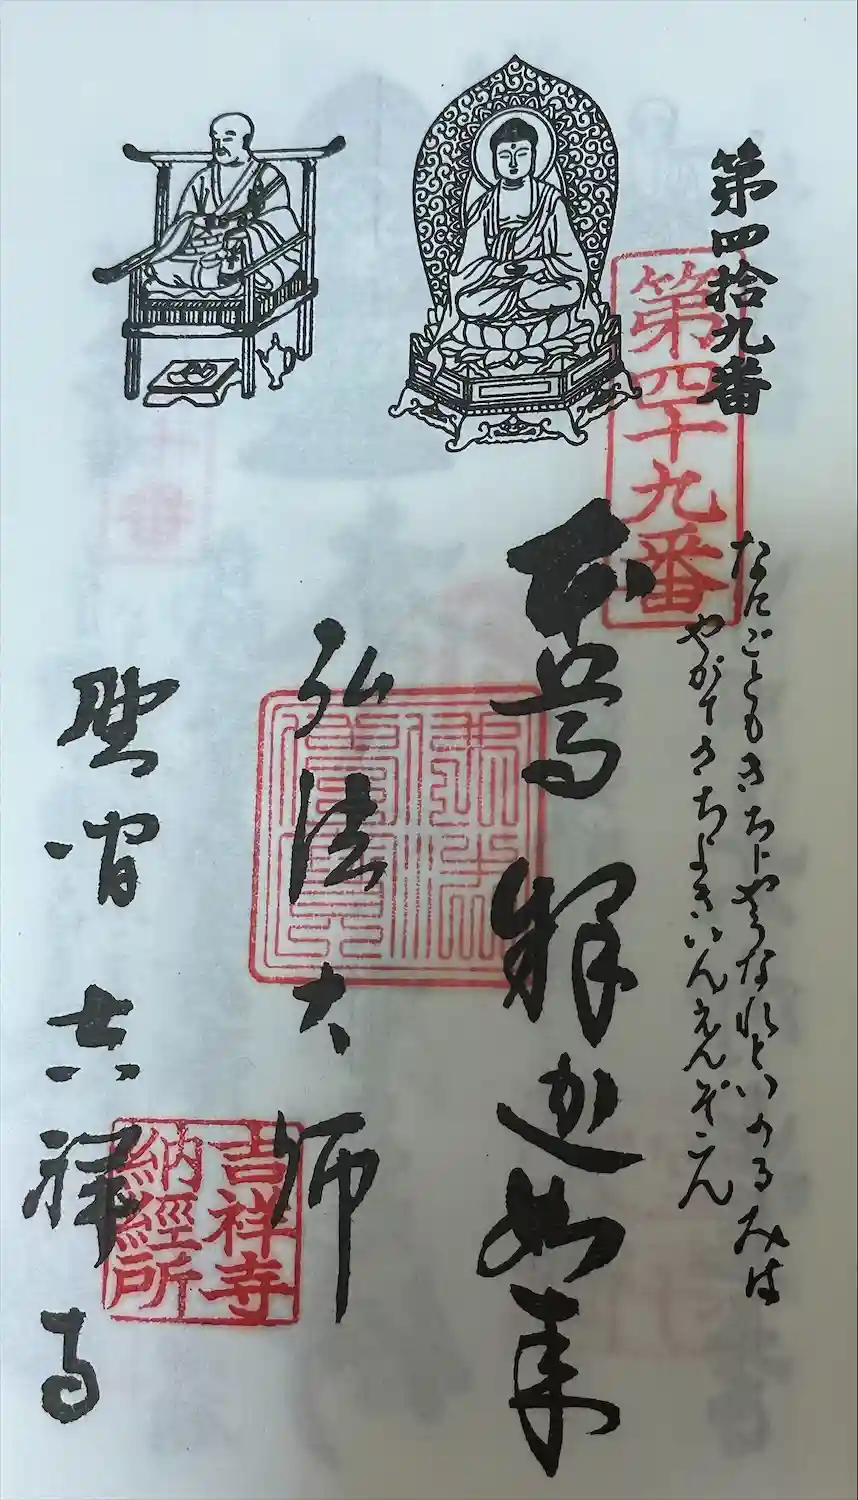 第四拾九番
第四十九番
なにごともきちじやうなれといのるみは
やがてきちよきいんえんぞ
本尊 釋迦如来
弘法大師
野間 吉祥寺
吉祥寺
納經所